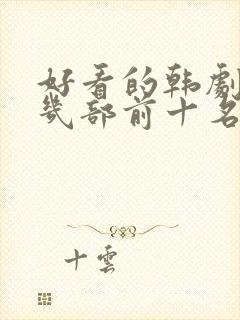 好看的韩劇
幾部前十名
十雲